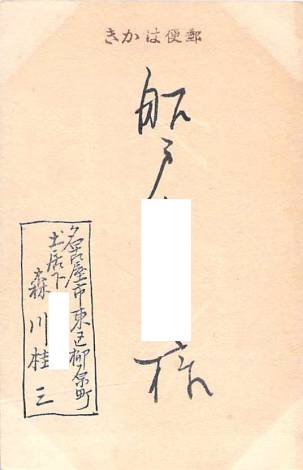 郵便はがき
船戸
様
名古屋市東区柳原町
土居下
森川桂三